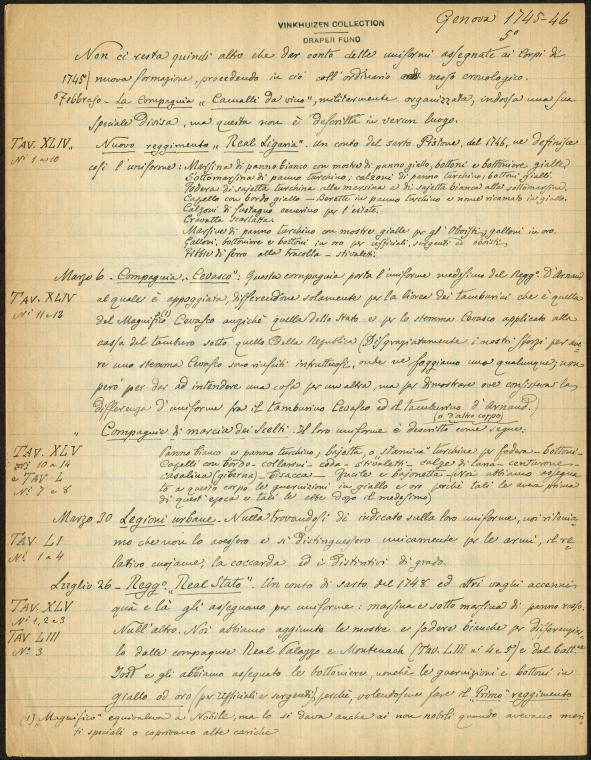 VINKHUIZEN COLLECTION
DRAPER FUND
Genova 1745-46
5º
Non ci resta quindi altro che dar conto delle uniformi assegnate ai Corpi di
1745) nuova formazione, procedendo in ciò coll'ordinario nesso cronologico.
Febbrajo - La Compagnia "Camalli da vino", militarmente organizzata, indossa una sua
speciale Divisa, ma questa non è descritta in verun luogo.
TAV. XLIV
Nº 1 a 10
" Nuovo reggimento "Real Liguria". Un conto del sarto Pistone, del 1746, ne definisce
così l'uniforme: Marsina di panno bianco con mostre di panno giallo, bottoni e bottoniere gialle
Sottomarsina di panno turchino; calzoni di panno turchino, bottoni gialli.
Fodera di sajetta turchina alla marsina e di sajetta bianca alla sottomarsina.
Capello con bordo giallo - Berette in panno turchino e nome ricamati in giallo.
Calzoni di fustagno per l'estate.
Cravatta scarlatta.
Marsine di panno turchino con mostre gialle per gl'Oboisti, galloni in oro.
Galloni, bottoniere e bottoni in oro per ufficiali, sergenti e oboisti.
di ferro alla tracolla - stivaletti.
Marzo 6 - Compagnia "Cevasco": Questa compagnia porta l'uniforme medesimo del Reggº D'Arnaud
TAV. XLIV
Nº 11 e 13
al quale è appoggiata, differendone solamente per la livrea dei tamburini che è quella
del Magnifico (1) Cevasco anziché quella dello Stato e per lo stemma Cevasco applicato alla
cassa del tamburo sotto quello della Republica (Disgraziatamente i nostri sforzi per ave-
re uno stemma Cevasco sono riusciti infruttuosi, onde ne foggiamo uno qualunque; non
però per dar ad intendere una cosa per un'altra, ma per dimostrare ove consisteva la
differenza d'uniforme fra il tamburino Cevasco ed il tamburino d'Arnaud.)
(o d'altro corpo)
" Compagnia di marcia dei Scelti. Il loro uniforme è descritto come segue:
TAV. XLV
10 a 14
e TAV. L
Nº 7 e 8
Panno bianco e panno turchino, bajetta, o "stamina" turchina per fodera - bottoni -
Capelli con bordo - collarini - coda - stivaletti - calze di lana - centurone -
casalina (giberna) - bisacca - fucile e bajonetta. Noi abbiamo assegna-
to a questo corpo le guernizioni in giallo e oro perchè tali le avea prima
di quest'epoca e tali le ebbe dopo il medesimo)
Marzo 30 Legioni urbane - Nulla trovandosi di indicato sulla loro uniforme, noi ritenia-
TAV. LI
Nº 1 a 4
mo che non lo avessero e si distinguessero unicamente per le armi, il re-
lativo cuojame, la coccarda ed i distintivi di grado.
Luglio 26 - Reggº "Real Stato". Un conto di sarto del 1748 ed altri vaghi accenni
TAV. XLV
Nº 1, 2 e 3
TAV LIII
Nº 3
quà e là gli assegnano per uniforme: marsina e sotto marsina di panno rosso.
Null'altro. Noi abbiamo aggiunto le mostre e fodere bianche per differenziar-
lo dalle compagnie Real Palazzo e Montevach (TAV. LIII nº 4 e 5) e dal Batt.ne
Jost e gli abbiamo assegnato le bottoniere, nonchè le guernizioni e bottoni in
giallo od oro (per Ufficiali e sergenti), perchè, volendosene fare il "Primo" reggimento
1) "Magnifico" equivaleva a Nobile, ma lo si dava anche ai non nobili quando avevano meri-
ti speciali o coprivano alte cariche